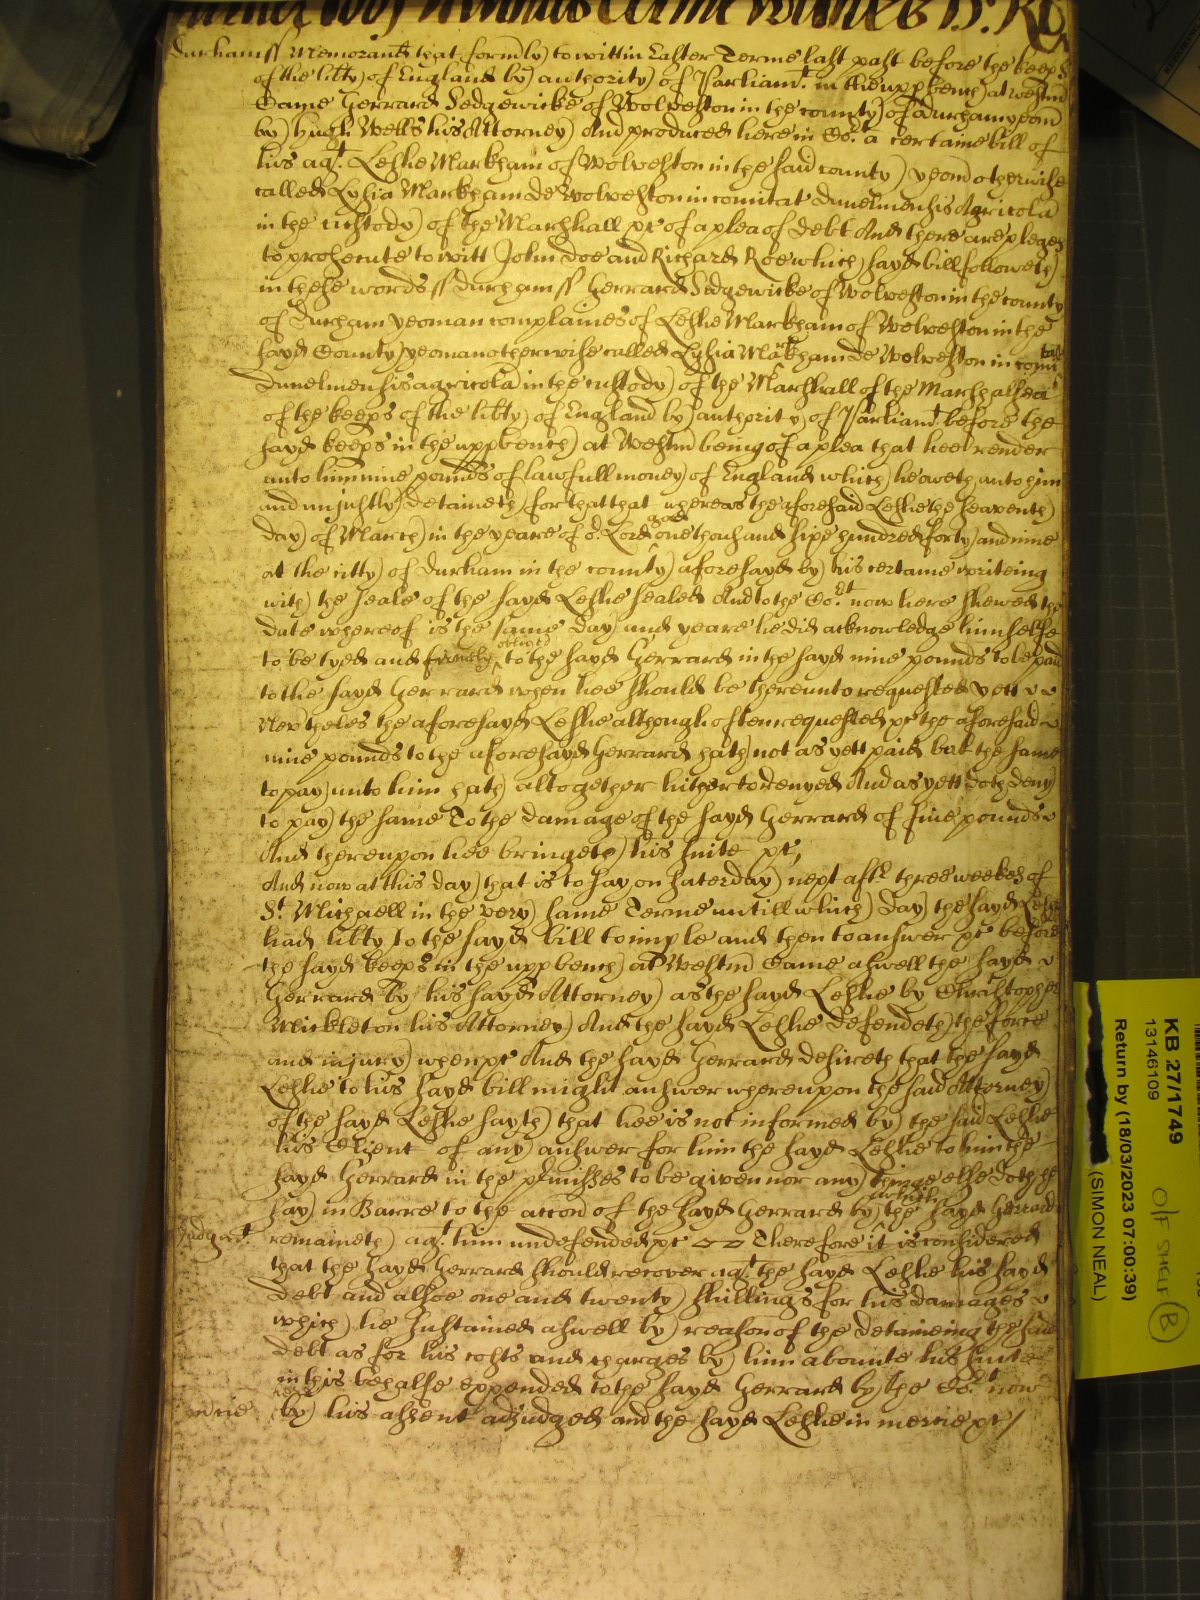 Durham ss Memorand that formly) to witt in Easter Terme last past before the keeps
of the libty) of England by) authority) of Parliamt. in the upp bench) at westm
Came Gerrard Sedgewicke of Wolveston in the county) of Durham yeom
by) Hugh Wells his Attorney) And produced here in Cort a certaine bill of
his agt. Leslie Markham of Wolveston in the said county) yeom otherwise
called Lyshia Markham de Wolveston in comitat Dunelmensis Agricola
in the custody) of the Marshall &c of a plea of debt And there are pledges
to prosecute to witt John Doe and Richard Roe which) sayd bill followeth)
in these words ss Durham ss Gerrard Sedgewicke of Wolveston in the county
of Durham yeoman complaines of Leslie Markham of Wolveston in the
sayd County) yeoman otherwise called Lyshia Markham de Wolveston in comitat
Dunelmensis agricola in the custody) of the Marshall of the Marshalsea
of the keeps of the libty) of England by) authority) of Parliamt. before the
sayd keeps in the upp bench) at Westm being of a plea that hee render
unto him nine pounds of lawfull money) of England which) he oweth unto him
and unjustly) detaineth) for that that whereas the aforesaid Leslie the seaventh)
day) of March) in the yeare of or. Lord god one thousand sixe hundred forty) and nine
at the citty) of Durham in the county) aforesayd by) his certaine writeing
with) the seale of the sayd Leslie sealed And to the Cort now here shewed the
date whereof is the same day) and yeare he did acknowledge himselfe
to be tyed and firmely obliged to the sayd Gerrard in the sayd nine pounds to be paid
to the sayd Gerrard when hee should be thereunto requested yett
Nevtheles the aforesayd Leslie although often requested &c the aforesaid
nine pounds to the aforesayd Gerrard hath) not as yett paid but the same
to pay) unto him hath) altogether hitherto denyed And as yett doth deny)
to pay) the same To the damage of the sayd Gerrard of five pounds
And thereupon hee bringeth) his suite &c,
And now at this day) that is to say on Saterday) next aftr three weekes of
St. Michaell in the very) same Terme untill which) day) the sayd Leslie
had libty to the sayd bill to imple and then to answer &c before
the sayd keeps in the upp bench) at Westm Came aswell the sayd
Gerrard by his sayd Attorney) as the sayd Leslie by Christopher
Mickleton his Attorney) And the sayd Leslie defendeth) the force
and injury) when &c And the sayd Gerrard desireth that the sayd
Leslie to his sayd bill might answer whereupon the said Attorney)
of the sayd Leslie sayth) that hee is not informed by) the said Leslie
his Client of any) answer for him the sayd Leslie to him the
sayd Gerrard in the pmisses to be given nor any) thinge else doth he
say) in Barre to the accon of the sayd Gerrard by) which the sayd Gerrard
Judgmt. remaineth) agt. him undefended &c Therefore it is considered
that the sayd Gerrard should recover agt. the sayd Leslie his sayd
debt and alsoe one and twenty) shillings for his damages
which) he sustained aswell by) reason of the detaineing the said
debt as for his costs and charges by) him aboute his suite
in this behalfe expended to the sayd Gerrard by) the Cort now
here
mcie by) his assent adjudged and the sayd Leslie in mercie &c/
KB 27/1749
13146109
Return by (18/03/2023 07:00:39)
(SIMON NEAL)
O/F SHELF B